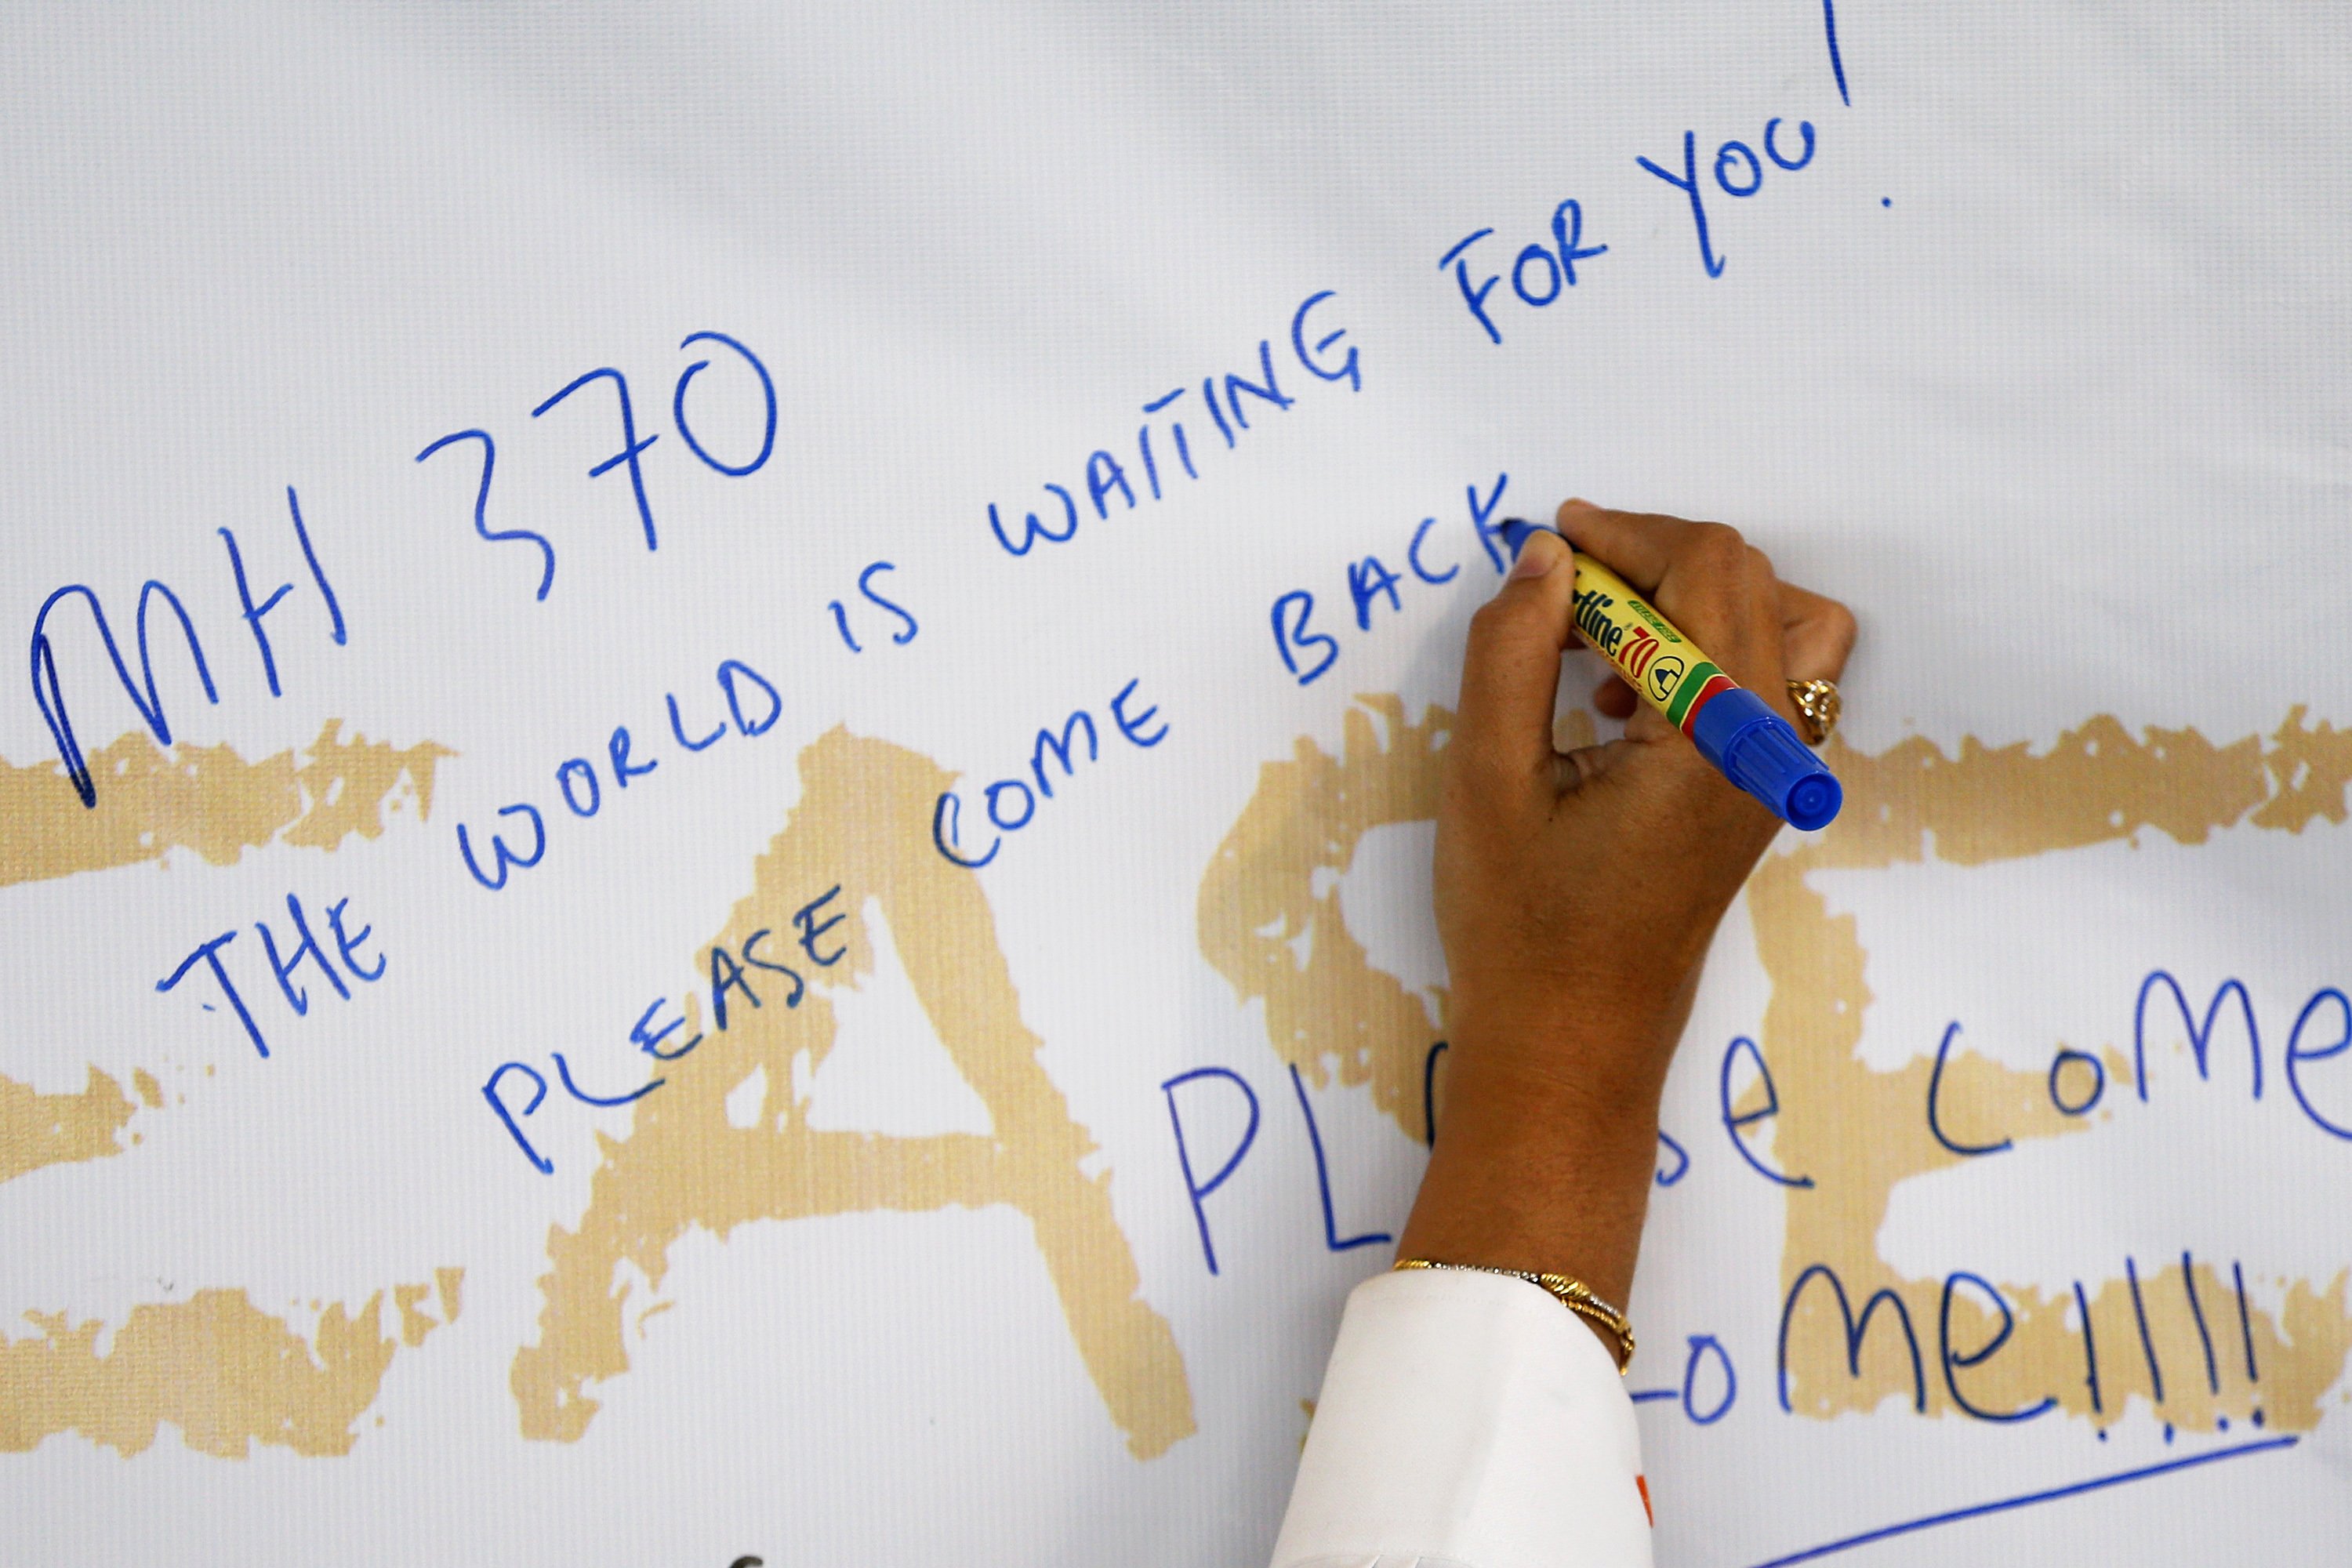 MH 370
THE WORLD IS WAITING FOR YOU!
PLEASE COME BACK
COME
OME!!!!
EASE
70